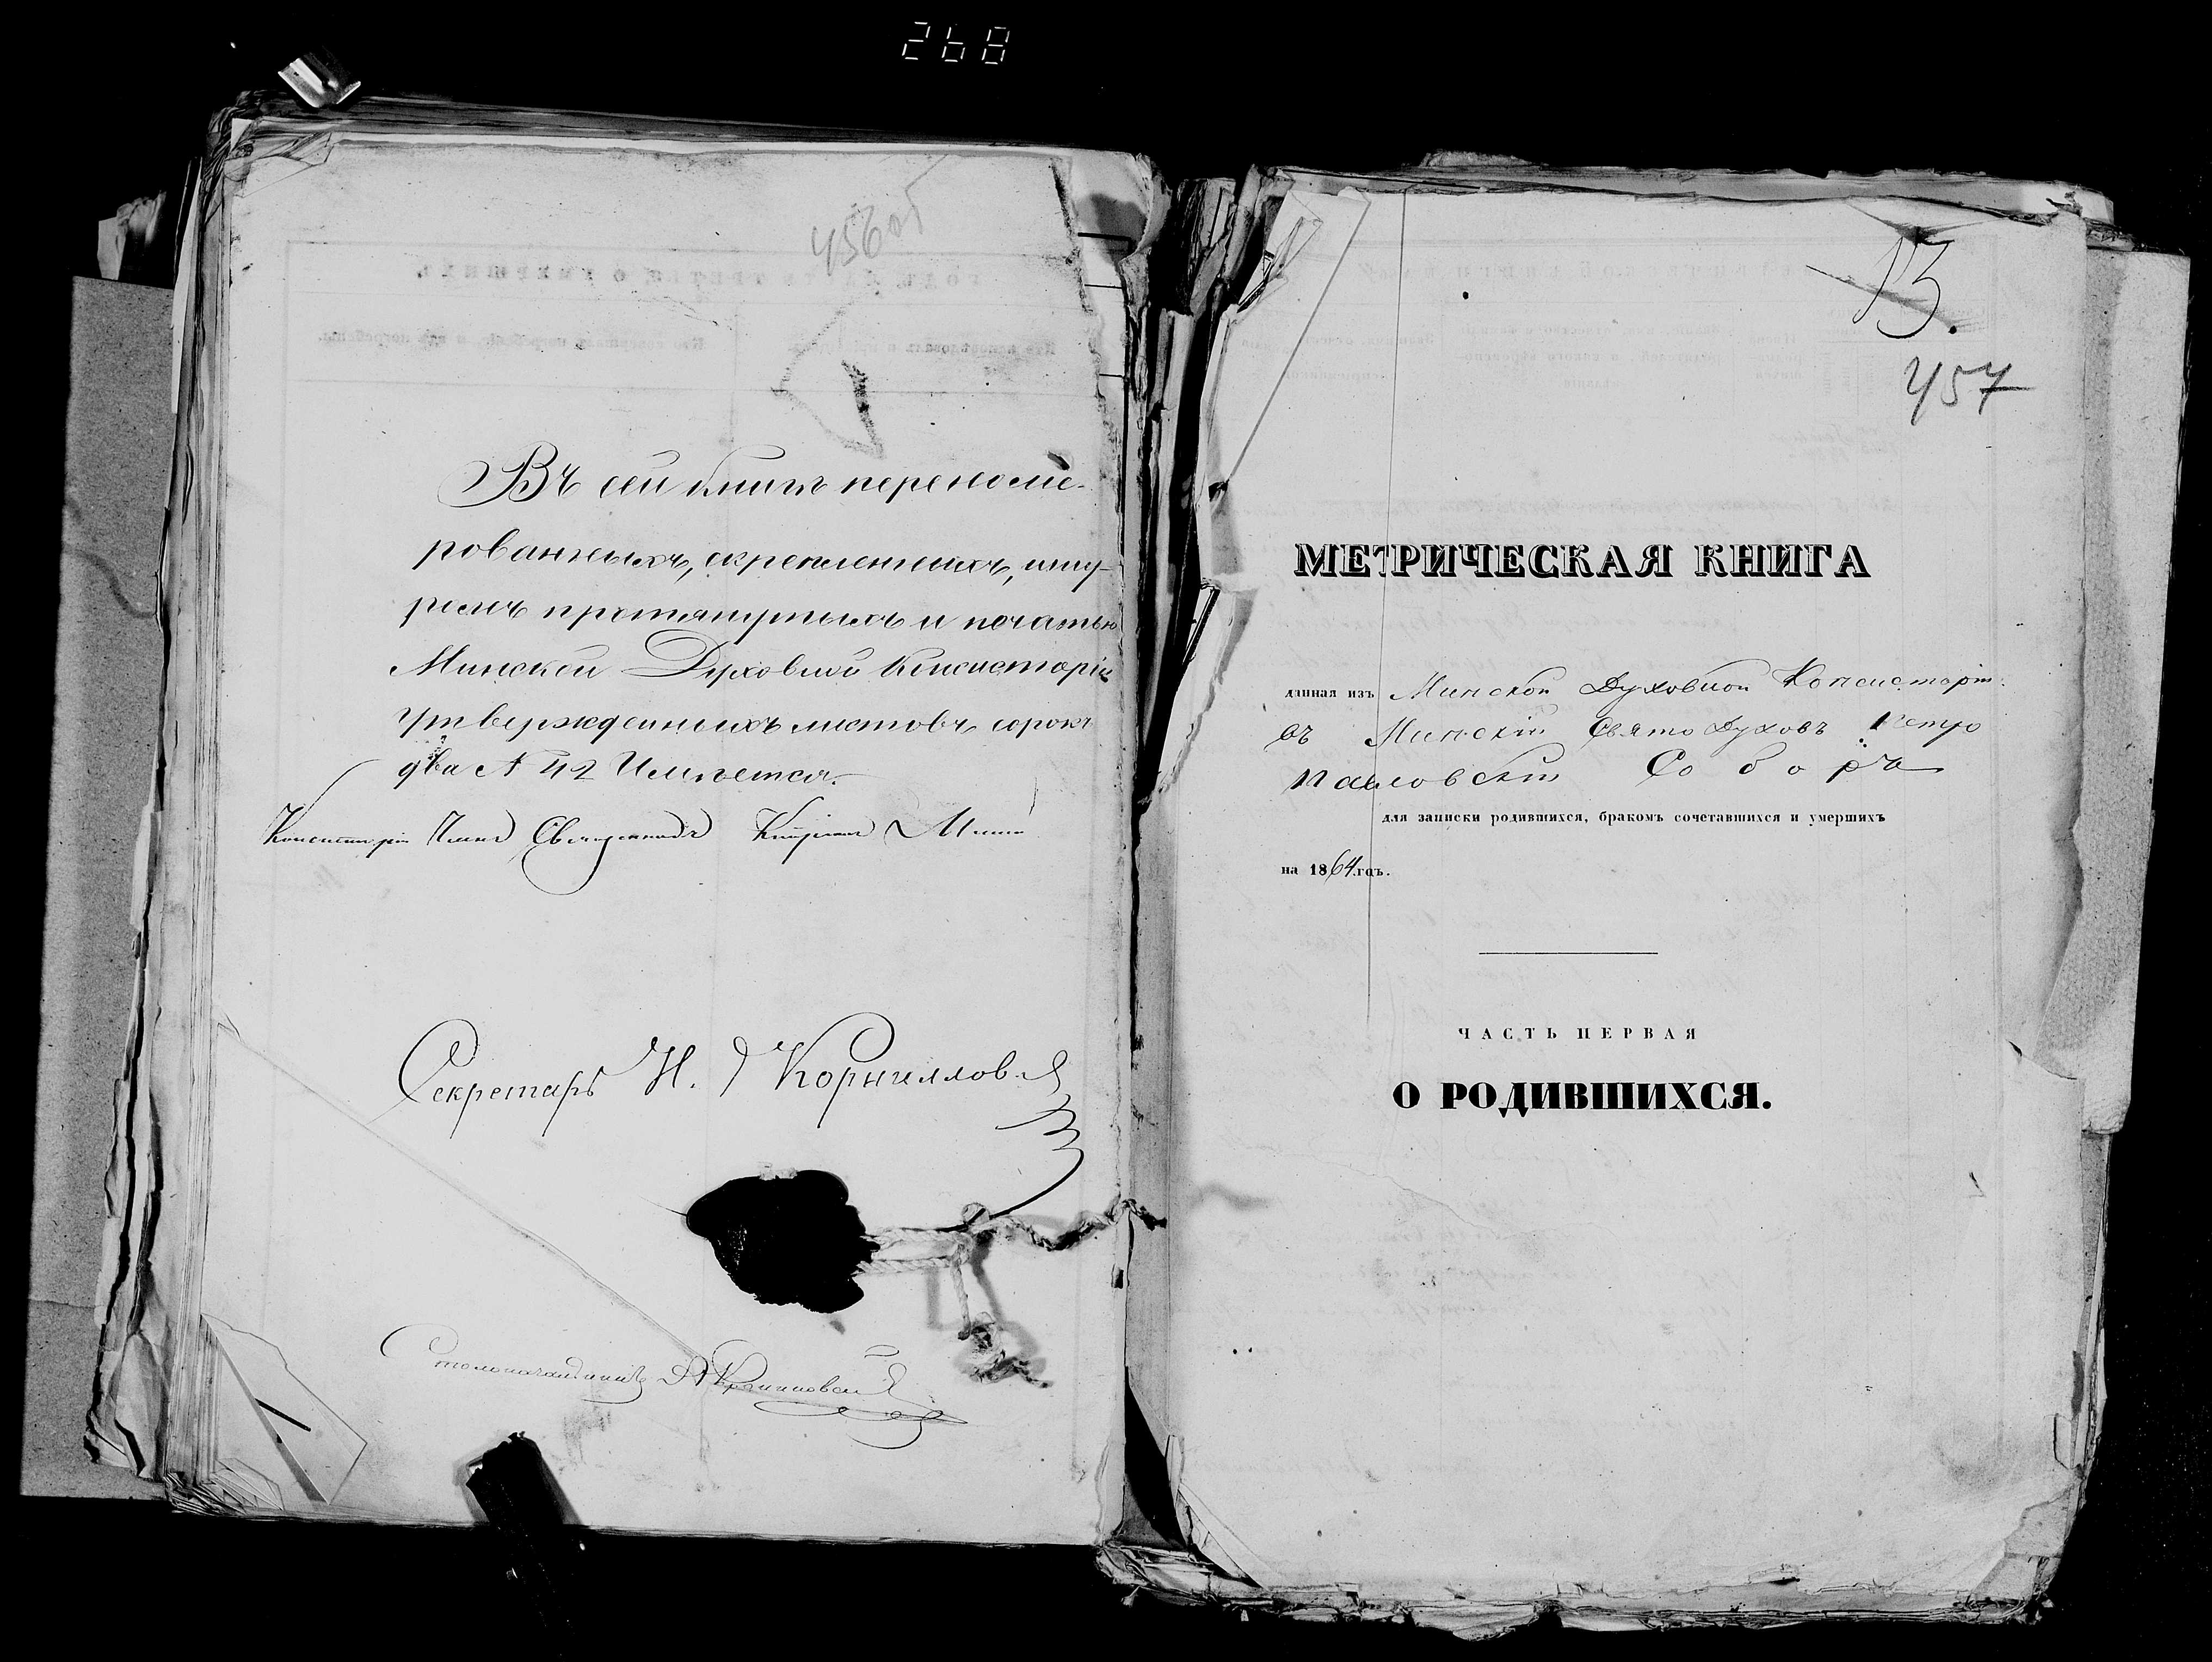 268
456 об
Въ сей книгѣ переноме-
рованныхъ, скрепленныхъ, шну-
ромъ протянутыхъ и печатью
Минской Духовной Консисторіи
утвержденныхъ листовъ сорокъ
два № 42 Имѣется.
Консисторіи Членъ Священникъ
Секретарь Н. Корниллов
Столоначальникъ
13.
457
МЕТРИЧЕСКАЯ КНИГА
данная изъ Минской Духовной Консисторіи
въ Минскій Свято Духовъ Петро
Павловскій Соборъ
для записки родившихся, бракомъ сочетавшихся и умершихъ
на 1864 годъ.
ЧАСТЬ ПЕРВАЯ
О РОДИВШИХСЯ.